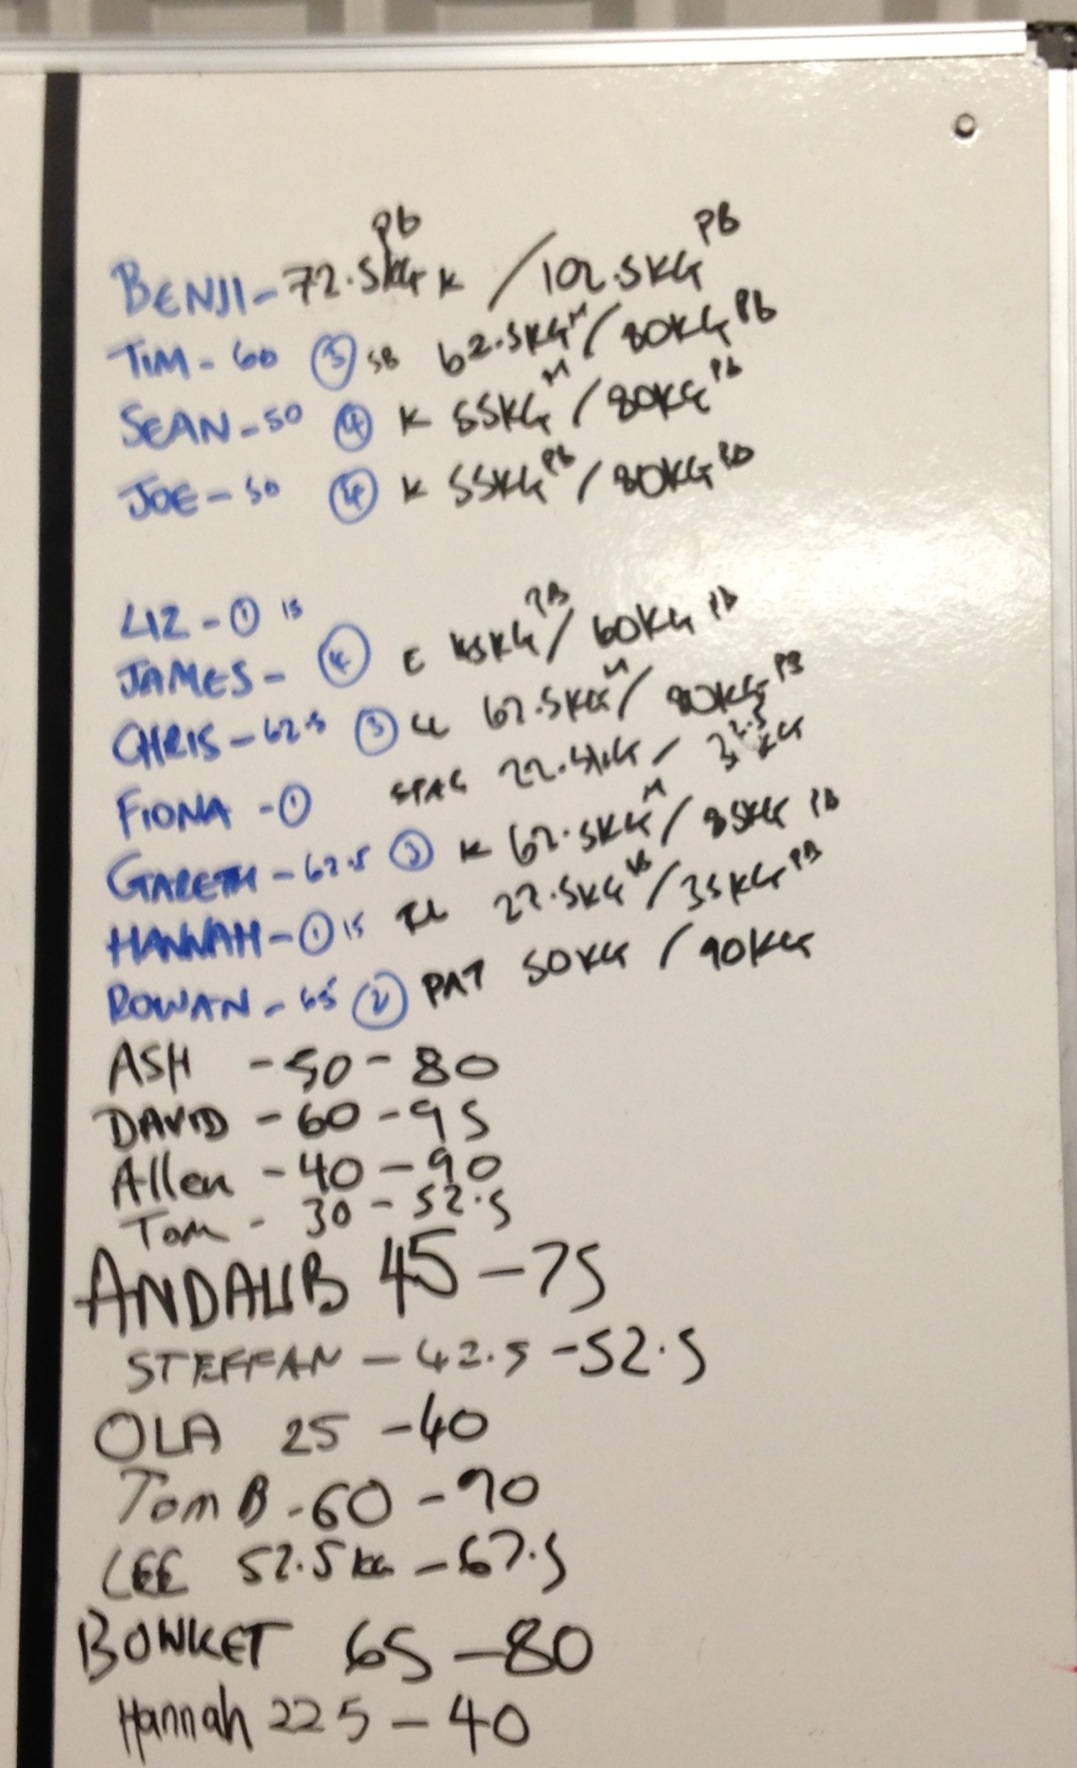 BENJI - 72.5KG pb K / 102.5KG PB
TIM - 60 ③ SB 62.5KG M / 80KG Pb
SEAN - 50 ④ K 55KG M / 80KG Pb
JOE - 50 ④ K 55KG Pb / 80KG PB
LIZ - ① 15
JAMES - ④ E 45KG PB / 60KG PB
CHRIS - 62.5 ③ 62.5KG M / 80KG PB
FIONA - ① STAG 22.5KG - 32.5 KG
GARETH - 62.5 ③ K 62.5KG M / 85KG PB
HANNAH - ① 15 22.5KG / 35KG PB
ROWAN - 65 ② PAT 50KG / 90KG
ASH - 50 - 80
DAVID - 60 - 95
Allen - 40 - 90
Tom - 30 - 52.5
ANDALIB 45 - 75
STEFFAN - 42.5 - 52.5
OLA 25 - 40
Tom B - 60 - 90
LEE 52.5 KG - 67.5
BOWKET 65 - 80
Hannah 22 5 - 40